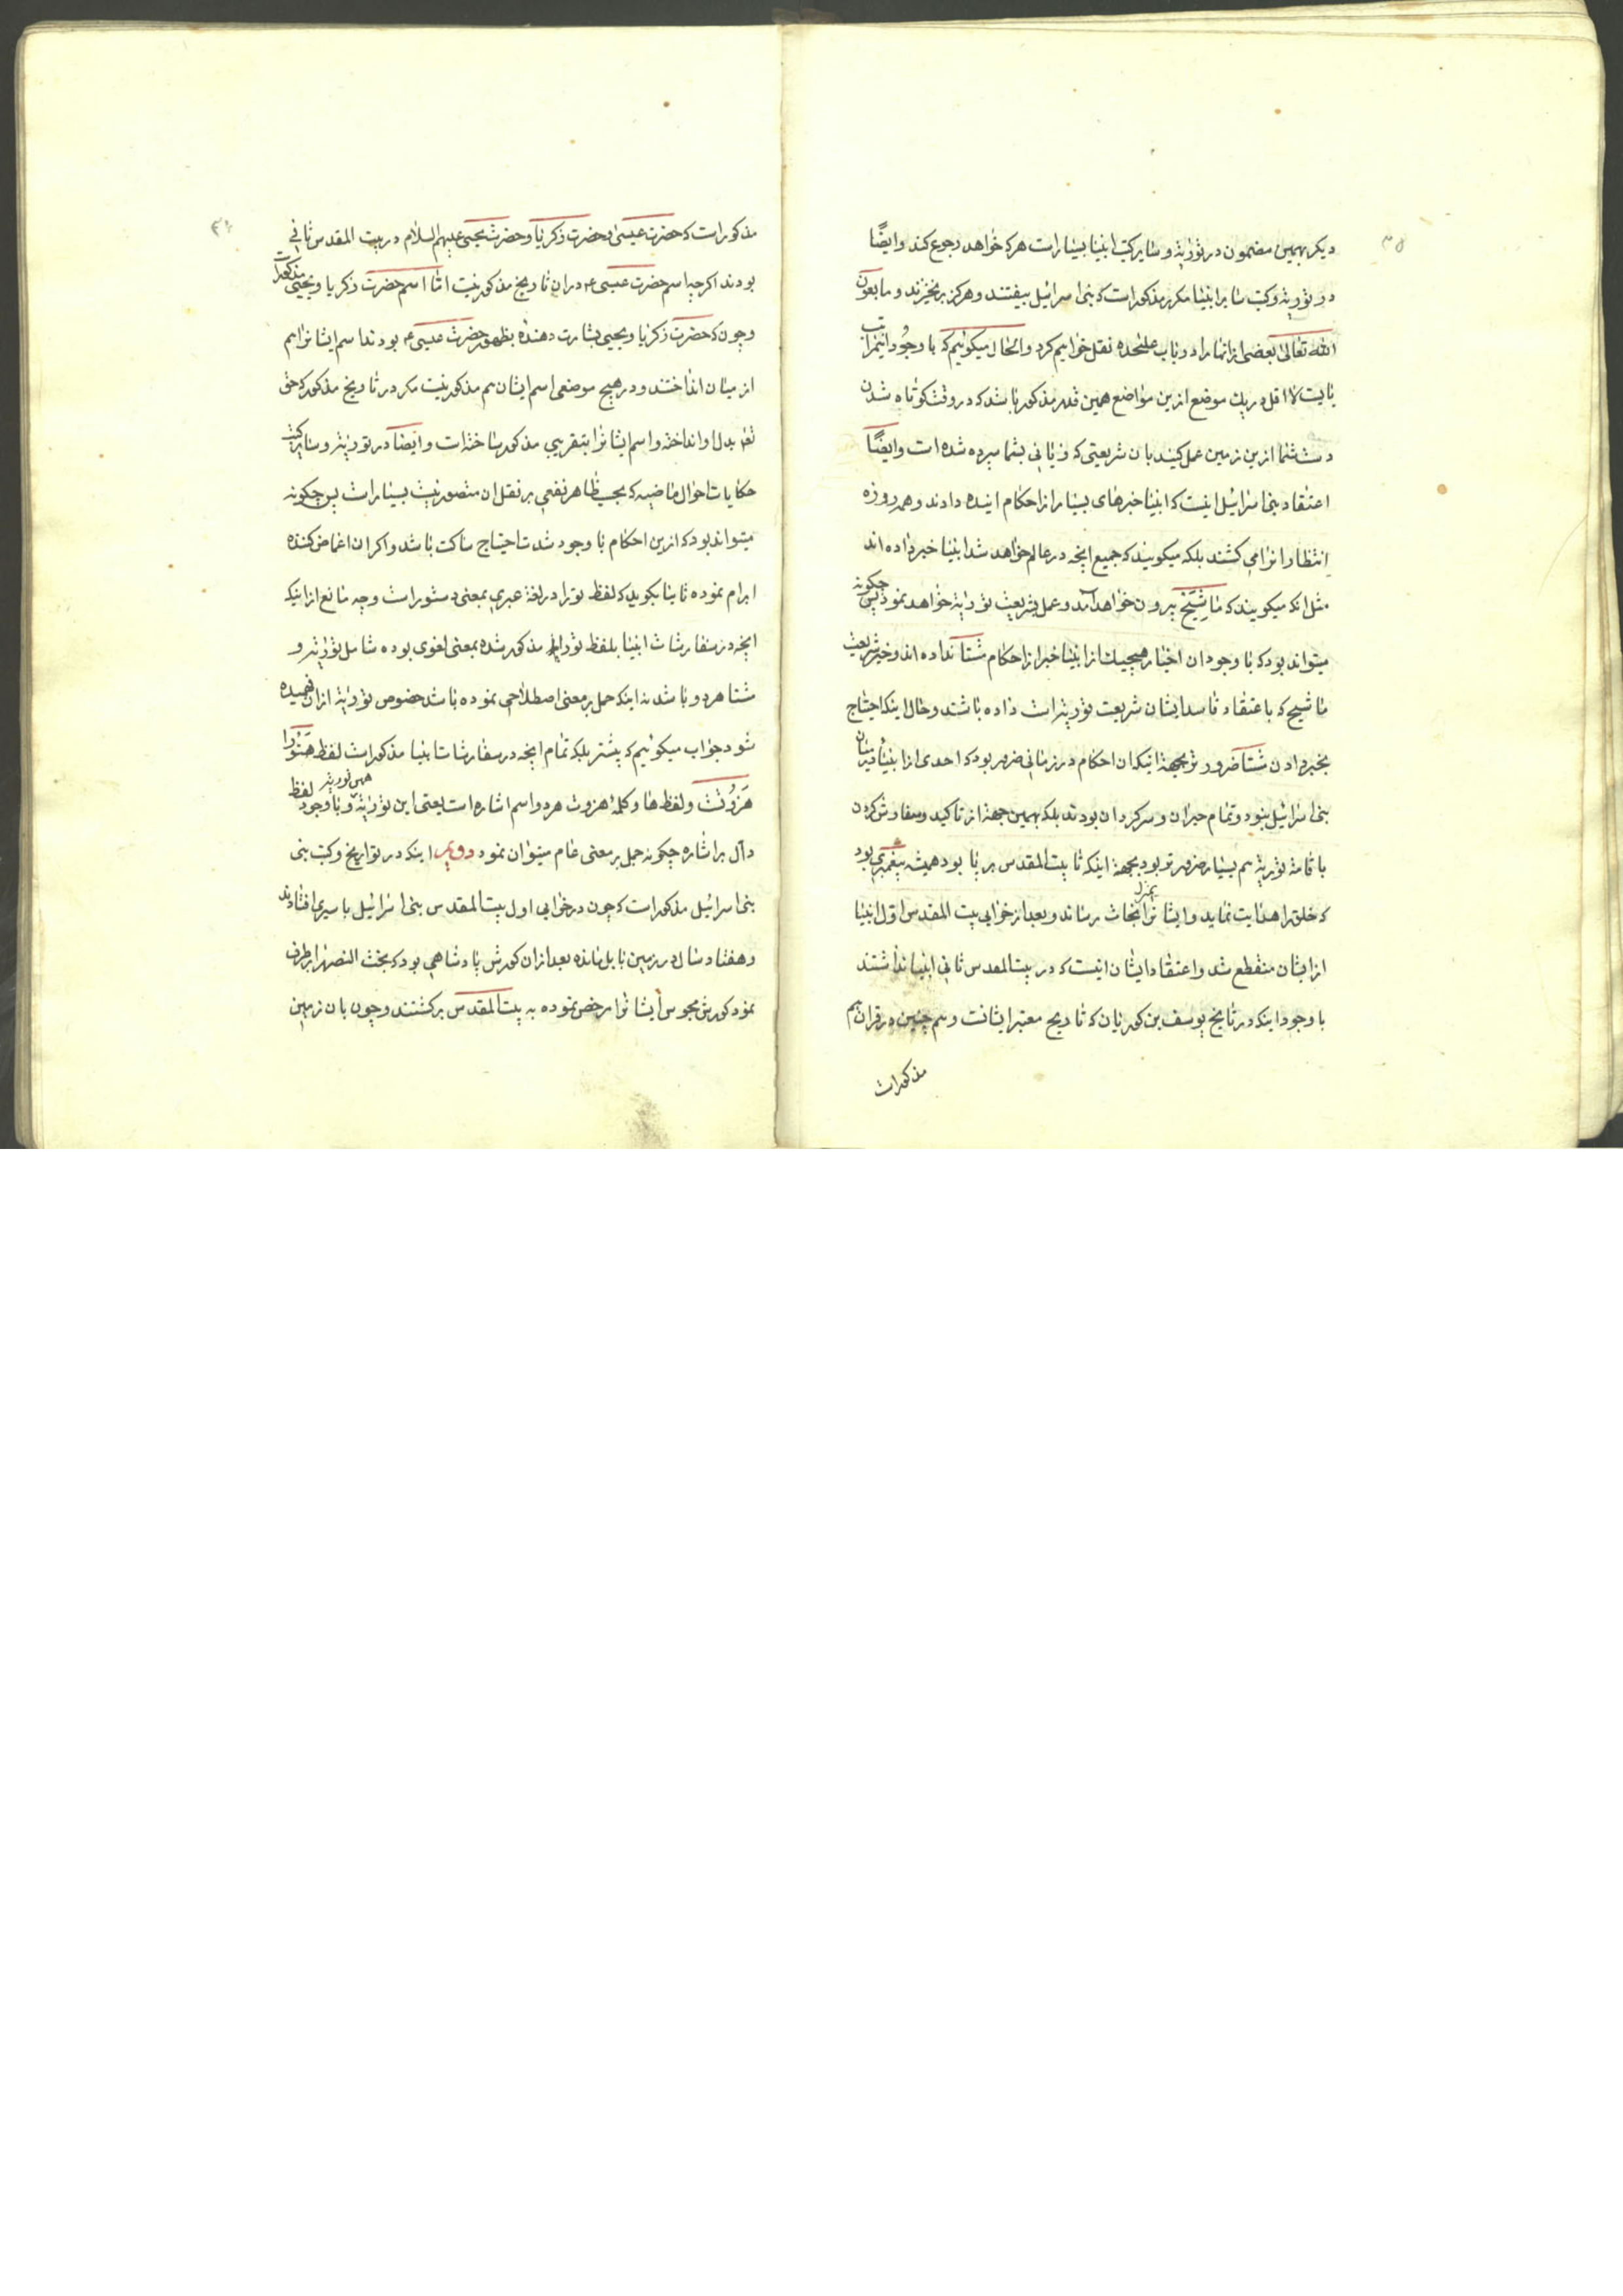 ۳۸
دیکر بهمین مضمون در توریة و سایر کتب انبیا بسیار است هر که خواهد رجوع کند و ایضًا
در توریة و کتب سایر انبیا مکرر مذکور است که بنی اسرائیل بیفتند و هرکز برنخیزند و ما بعون
الله تعالی بعضی از انها را در باب علیحده نقل خواهیم کرد و الحال میکوئیم که با وجود این مراتب
بایست لا اقل در یک موضع ازین مواضع همین قدر مذکور باشد که در وقت کوتاه شدن
دست شما ازین زمین عمل کنید بان شریعتی که زبانی بشما سپرده شده است و ایضًا
اعتقاد بنی اسرائیل اینست که انبیا خبرهای بسیار از احکام اینده دادند و همه روزه
انتظار انرا می کشند بلکه میکویند که جمیع انچه در عالم خواهد شد انبیا خبر داده اند
مثل انکه میکویند که ماشیَخ بیرون خواهد آمد و عمل بشریعت توریة خواهد نمود پس چکونه
میتواند بود که با وجود ان اخبار هیچیک از انبیا خبر از احکام مشنا نداده اند و خبر شریعت
ماشیح که باعتقاد فاسد ایشان شریعت توریة است داده باشند و حال اینکه احتیاج
بخبر دادن مشنا ضرورتر بجهة اینکه ان احکام در زمانی ضرور بود که احدی از انبیا در میان
بنی اسرائیل نبود و تمام حیران و سرکردان بودند بلکه بهمین جهة از تاکید و سفارش کردن
باقامة توریة هم بسیار ضرورتر بود بجهة اینکه تا بیت المقدس بر پا بود همیشه پیغمبری بود
که خلق را هدایت نماید و ایشانرا بمنزل نجات رساند و بعد از خرابی بیت المقدس اول انبیا
از ایشان منقطع شد و اعتقاد ایشان اینست که در بیت المقدس ثانی انبیا نداشتند
با وجود اینکه در تاریخ یوسف بن کوریان که تاریخ معتبر ایشانست و هم چنین در قران هم
مذکور است
مذکور است که حضرت عیسی و حضرت زکریا و حضرت یحیی علیهم السلام در بیت المقدس ثانی
بودند اکرچه اسم حضرت عیسی ع در ان تاریخ مذکور نیست اما اسم حضرت زکریا و یحیی مذکور است
و چون که حضرت زکریا و یحیی بشارت دهنده بظهور حضرت عیسی ع بودند اسم ایشانرا هم
از میان انداختند و در هیچ موضعی اسم ایشان هم مذکور نیست مکر در تاریخ مذکور که حق
تعالی بدل او انداخته و اسم ایشانرا بتقریبی مذکور ساخته است و ایضا در توریة و سایر کتب
حکایات احوال ماضیه که بحسب ظاهر نفعی بر نقل ان متصور نیست بسیار است پس چکونه
میتواند بود که ازین احکام با وجود شدت احتیاج ساکت باشد و اکر ان اغماض کننده
ابرام نموده ثانیا بکوید که لفظ تورا در لغة عبری بمعنی دستور است و چه مانع از اینکه
انچه در سفارشات انبیا بلفظ تورا مذکور شده بمعنی لغوی بوده شامل توریة و
مشنا هر دو باشد نه اینکه حمل بر معنی اصطلاحی نموده باشد خصوص توریة از ان فهمیده
شود جواب میکوئیم که بیشتر بلکه تمام انچه در سفارشات انبیا مذکور است لفظ هَتّورا
هَزوُتْ و لفظ ها و کلمه هزوت هر دو اسم اشاره است یعنی این توریة همین توریة و با وجود لفظ
دال بر اشاره چکونه حمل بر معنی عام میتوان نمود دویم اینکه در تواریخ و کتب بنی
بنی اسرائیل مذکور است که چون در خرابی اول بیت المقدس بنی اسرائیل باسیری افتادند
و هفتاد سال در زمین بابل مانده بعد از ان کورش پادشاهی بود که بخت النصر را برطرف
نمود کورش مجوس ایشانرا مرخص نموده به بیت المقدس برکشتند و چون بان زمین